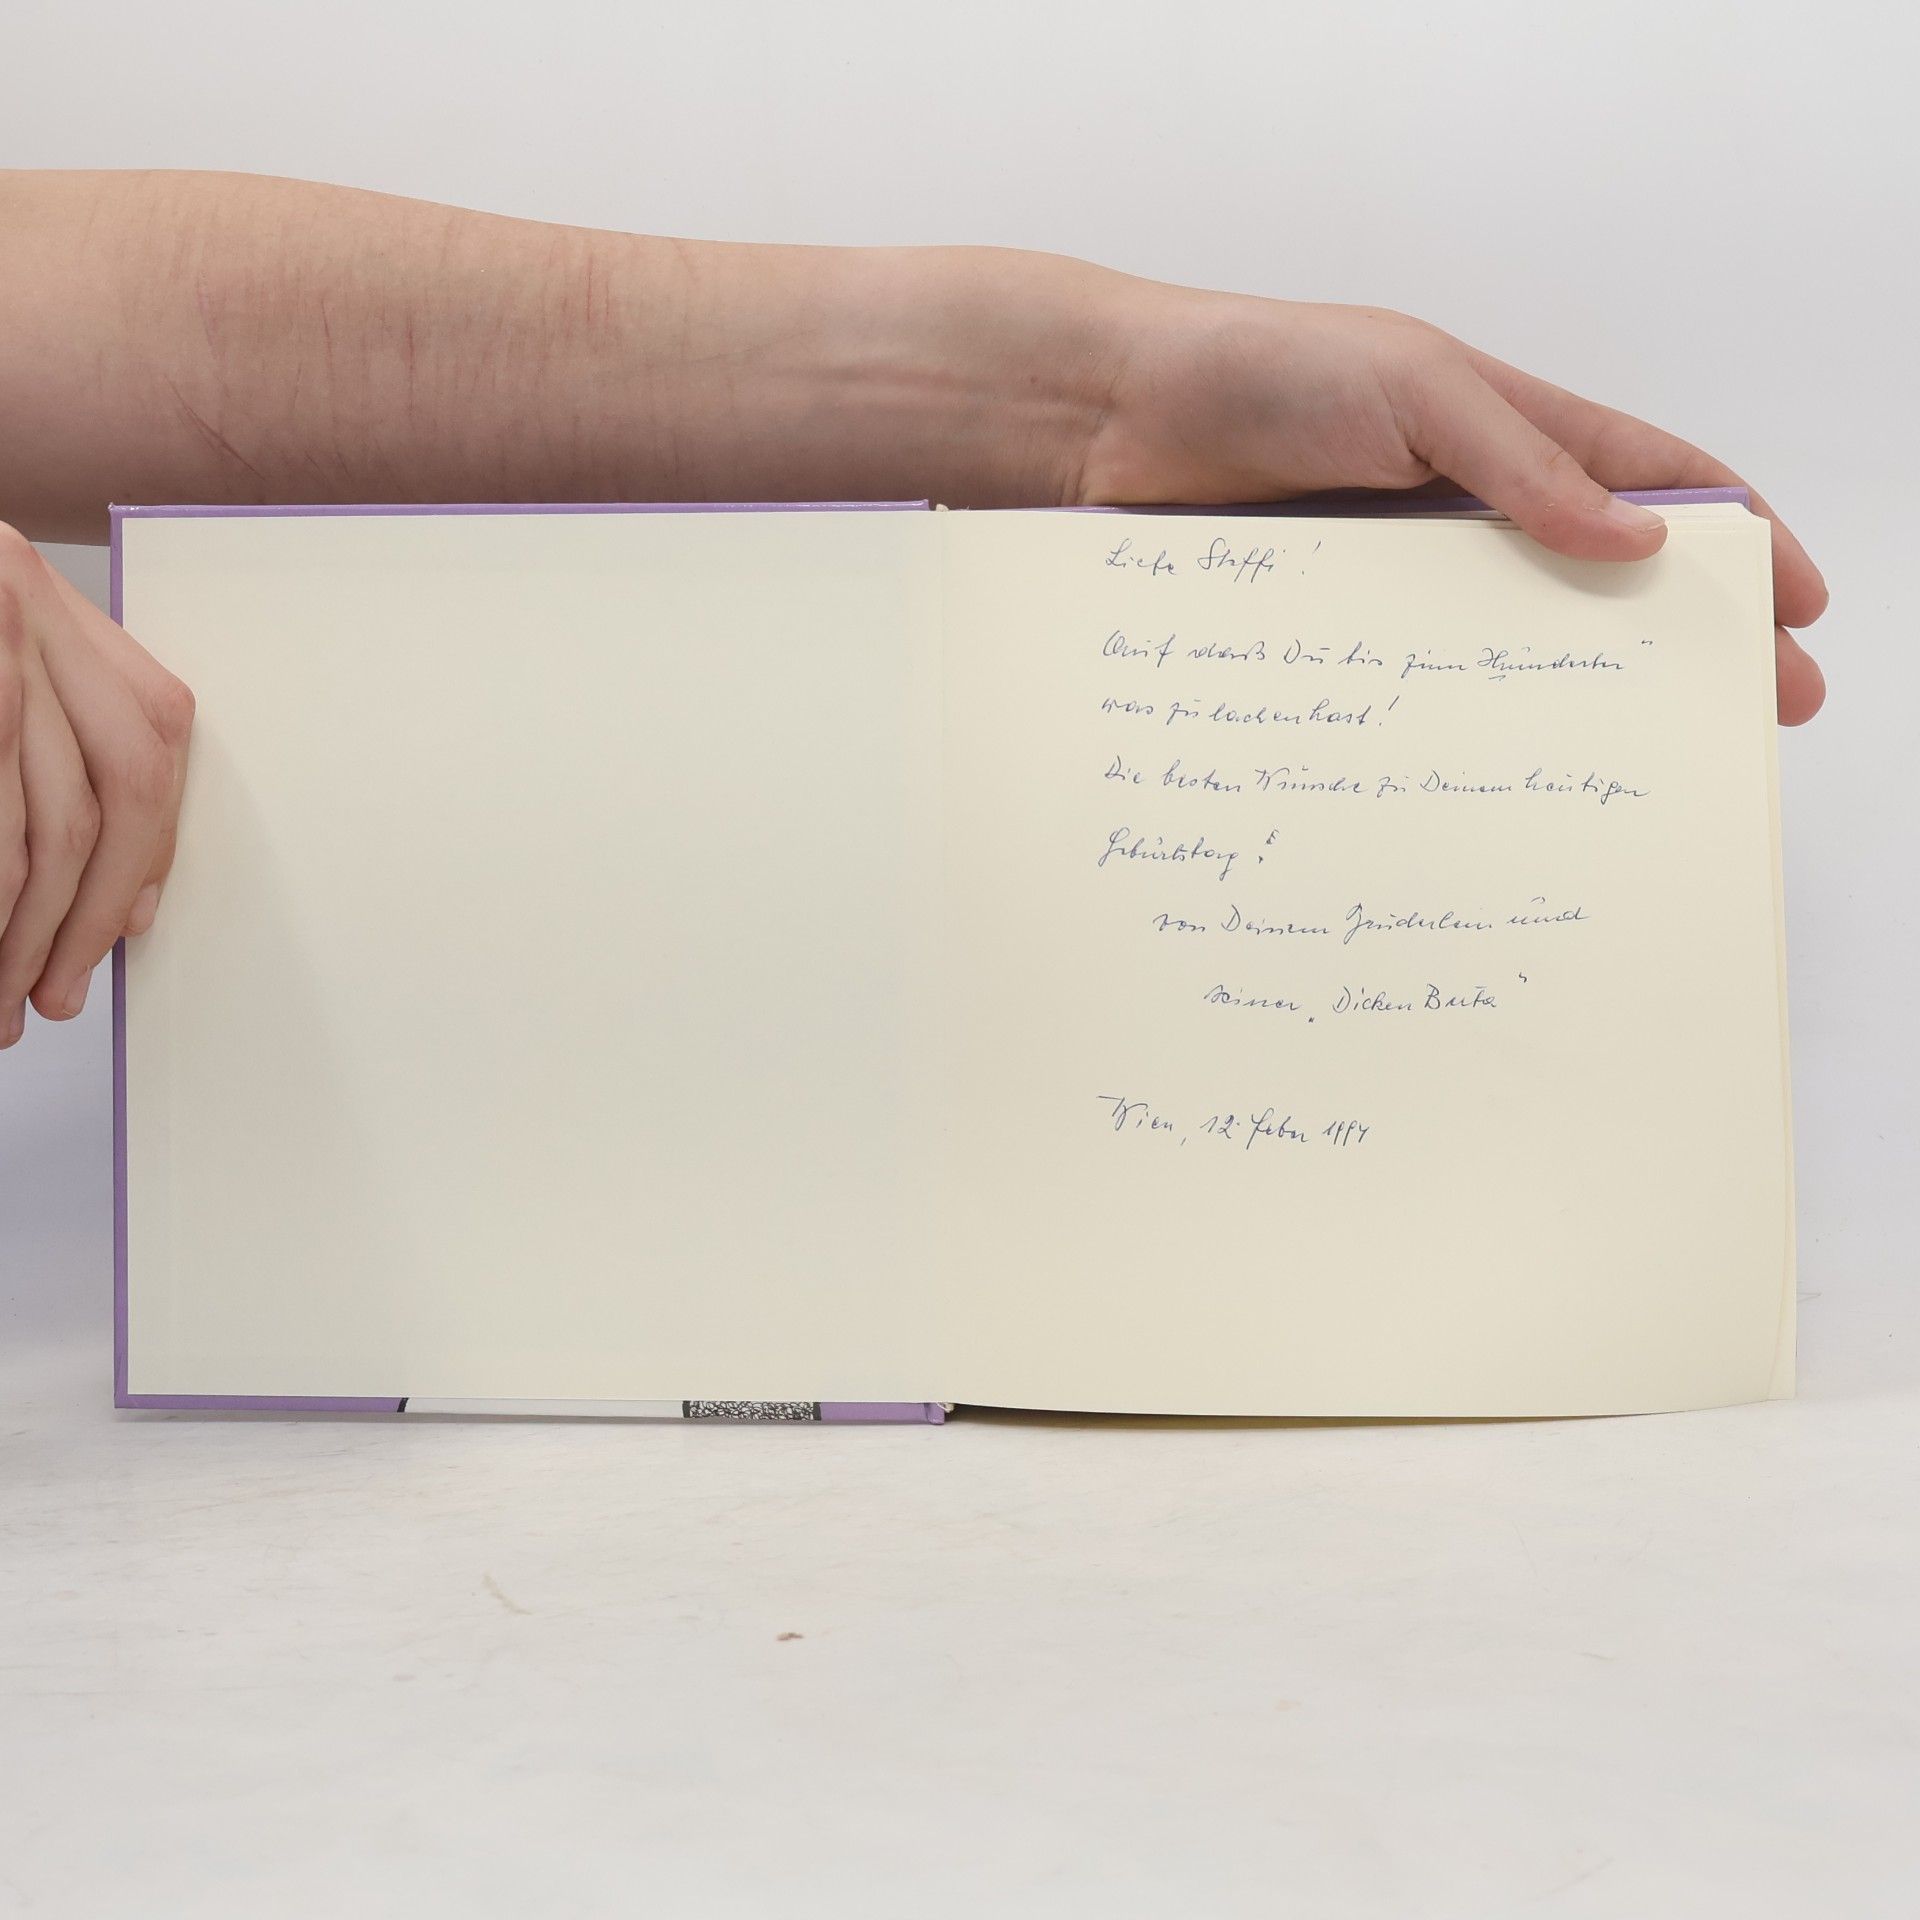 Liebe Steffi!
Auf daß Du bis zum „Hunderter“
was zu lachen hast!
Die besten Wünsche zu Deinem heutigen
Geburtstag!
von Deinem Bruderlein und
seiner „Dicken Berta“
Wien, 12. Feber 1994